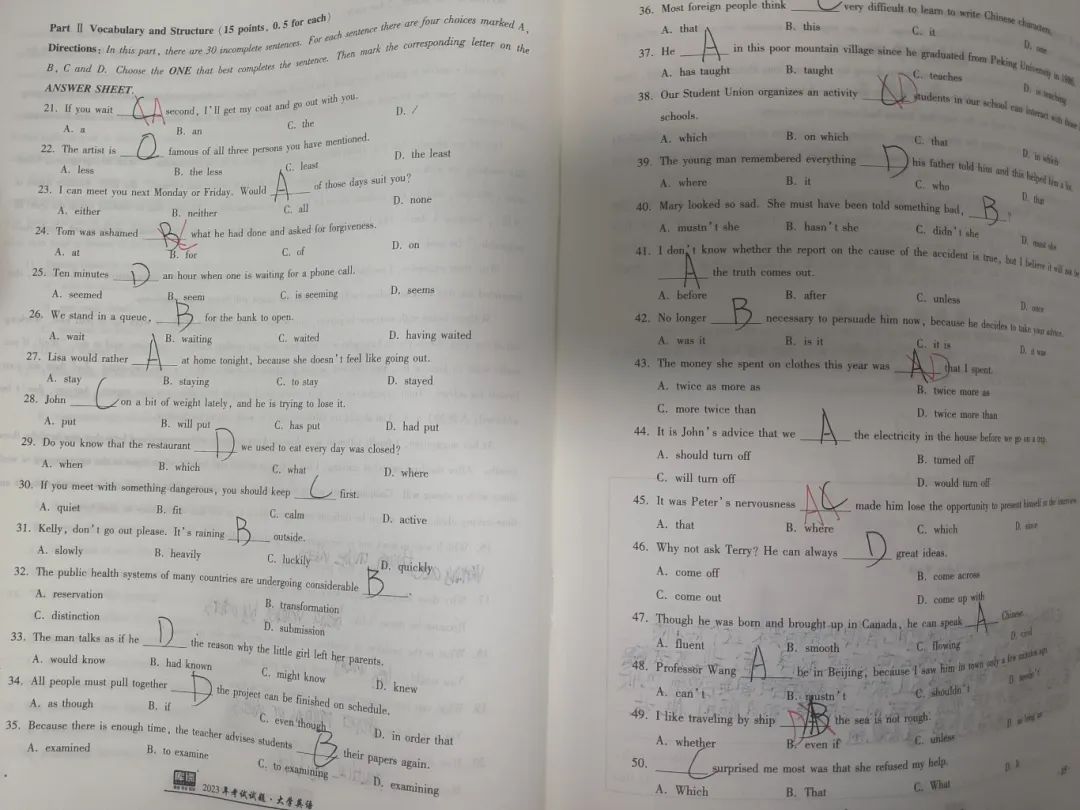 Part Ⅱ Vocabulary and Structure (15 points, 0.5 for each)
Directions: In this part, there are 30 incomplete sentences. For each sentence there are four choices marked A,
B, C and D. Choose the ONE that best completes the sentence. Then mark the corresponding letter on the
ANSWER SHEET.
21. If you wait C A second, I'll get my coat and go out with you.
A. a B. an C. the D. /
22. The artist is famous of all three persons you have mentioned.
A. less B. the less C. least D. the least
23. I can meet you next Monday or Friday. Would A of those days suit you?
A. either B. neither C. all D. none
24. Tom was ashamed B C what he had done and asked for forgiveness.
A. at B. for C. of D. on
25. Ten minutes D an hour when one is waiting for a phone call.
A. seemed B. seem C. is seeming D. seems
26. We stand in a queue, B for the bank to open.
A. wait B. waiting C. waited D. having waited
27. Lisa would rather A at home tonight, because she doesn't feel like going out.
A. stay B. staying C. to stay D. stayed
28. John C on a bit of weight lately, and he is trying to lose it.
A. put B. will put C. has put D. had put
29. Do you know that the restaurant D we used to eat every day was closed?
A. when B. which C. what D. where
30. If you meet with something dangerous, you should keep C first.
A. quiet B. fit C. calm D. active
31. Kelly, don't go out please. It's raining B outside.
A. slowly B. heavily C. luckily D. quickly
32. The public health systems of many countries are undergoing considerable B.
A. reservation B. transformation
C. distinction D. submission
33. The man talks as if he D the reason why the little girl left her parents.
A. would know B. had known C. might know D. knew
34. All people must pull together D the project can be finished on schedule.
A. as though B. if C. even though D. in order that
35. Because there is enough time, the teacher advises students B their papers again.
A. examined B. to examine C. to examining D. examining
库课
2023年考试试题·大学英语
36. Most foreign people think C very difficult to learn to write Chinese characters.
A. that B. this C. it D. one
37. He A in this poor mountain village since he graduated from Peking University in 1986.
A. has taught B. taught C. teaches D. is teaching
38. Our Student Union organizes an activity D students in our school can interact with those
schools.
A. which B. on which C. that D. in which
39. The young man remembered everything D his father told him and this helped him a lot.
A. where B. it C. who D. that
40. Mary looked so sad. She must have been told something bad, B ?
A. mustn't she B. hasn't she C. didn't she D. must she
41. I don't know whether the report on the cause of the accident is true, but I believe it will not be
A the truth comes out.
A. before B. after C. unless D. once
42. No longer B necessary to persuade him now, because he decides to take your advice.
A. was it B. is it C. it is D. it was
43. The money she spent on clothes this year was A D that I spent.
A. twice as more as B. twice more as
C. more twice than D. twice more than
44. It is John's advice that we A the electricity in the house before we go on a trip.
A. should turn off B. turned off
C. will turn off D. would turn off
45. It was Peter's nervousness A C made him lose the opportunity to present himself in the interview
A. that B. where C. which D. since
46. Why not ask Terry? He can always D great ideas.
A. come off B. come across
C. come out D. come up with
47. Though he was born and brought up in Canada, he can speak A Chinese.
A. fluent B. smooth C. flowing D.
48. Professor Wang A be in Beijing, because I saw him in town only a few minutes ago.
A. can't B. mustn't C. shouldn't D. needn't
49. I like traveling by ship D B the sea is not rough.
A. whether B. even if C. unless D. as long as
50. C surprised me most was that she refused my help.
A. Which B. That C. What D. It